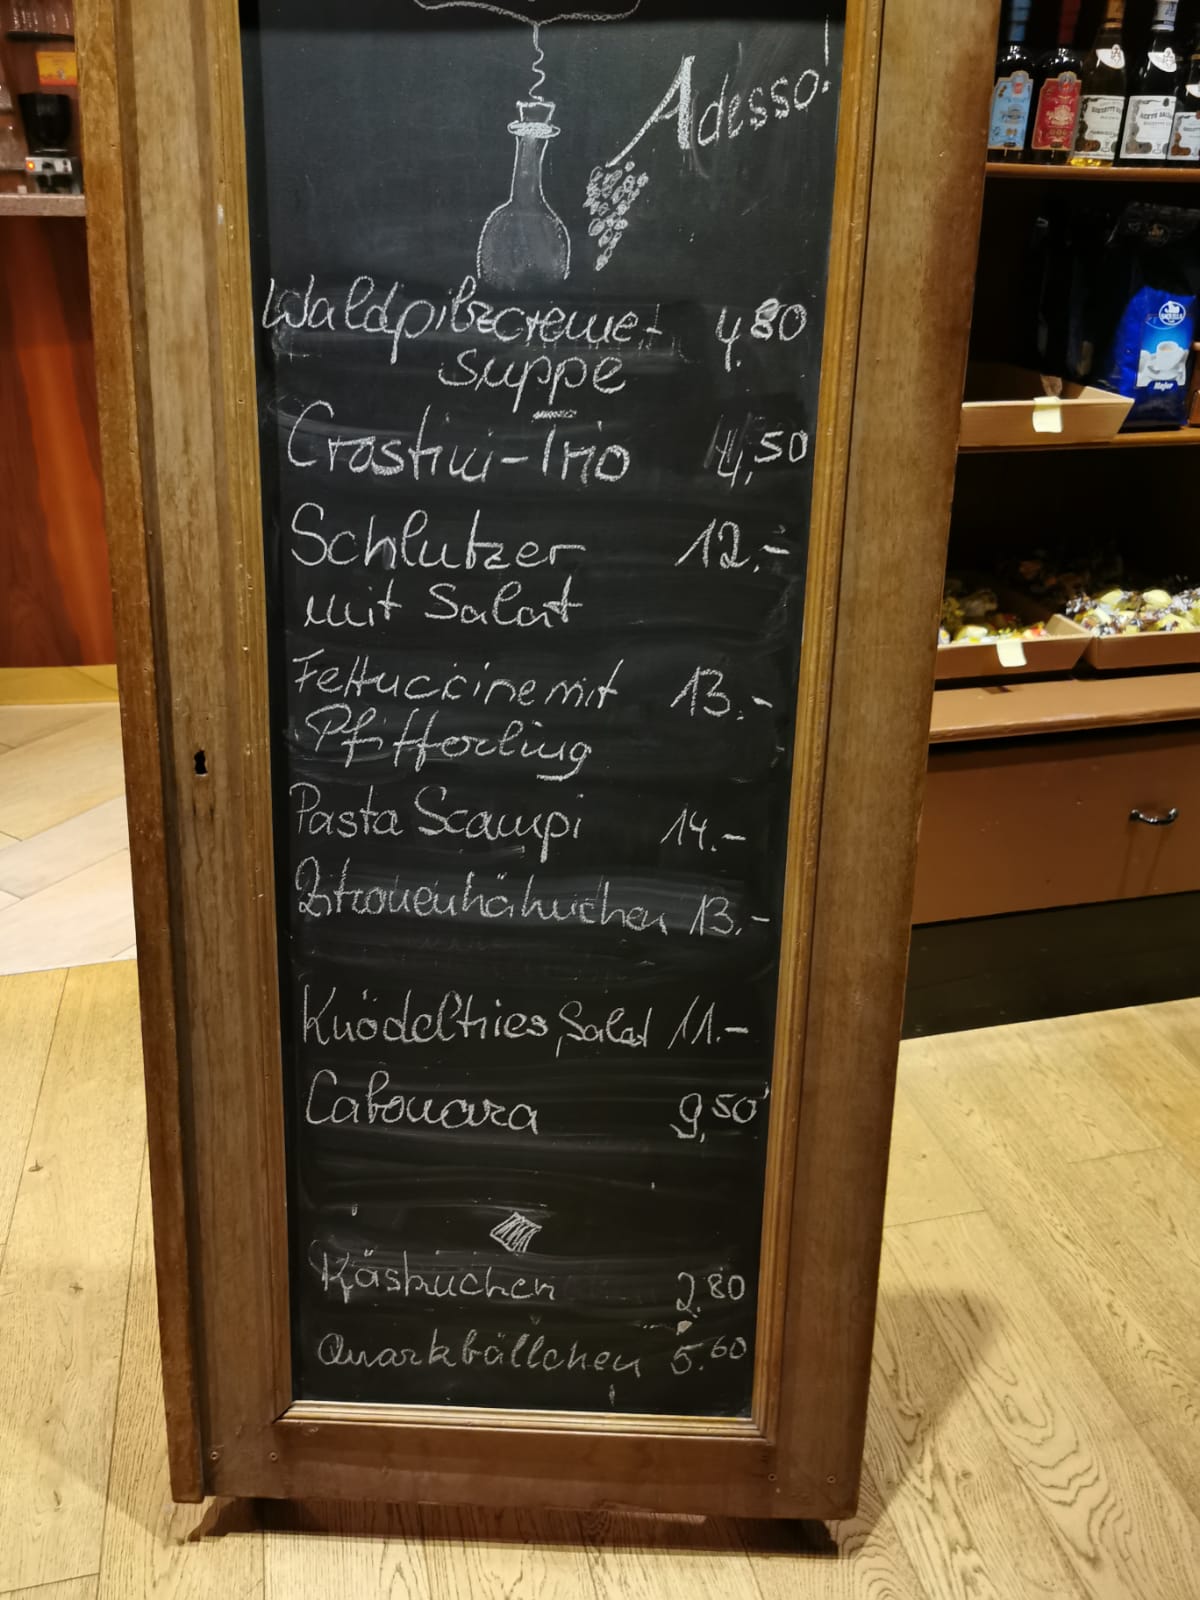 Adesso!
Waldpilzcreme- 4,80
suppe
Crostini-Trio 4,50
Schlutzer 12.-
mit Salat
Fettuccine mit 13.-
Pfifferling
Pasta Scampi 14.-
Zitronenhähnchen 13.-
Knödeltries, Salat 11.-
Cabonara 9,50
Käskuchen 2.80
Quarkbällchen 5.60